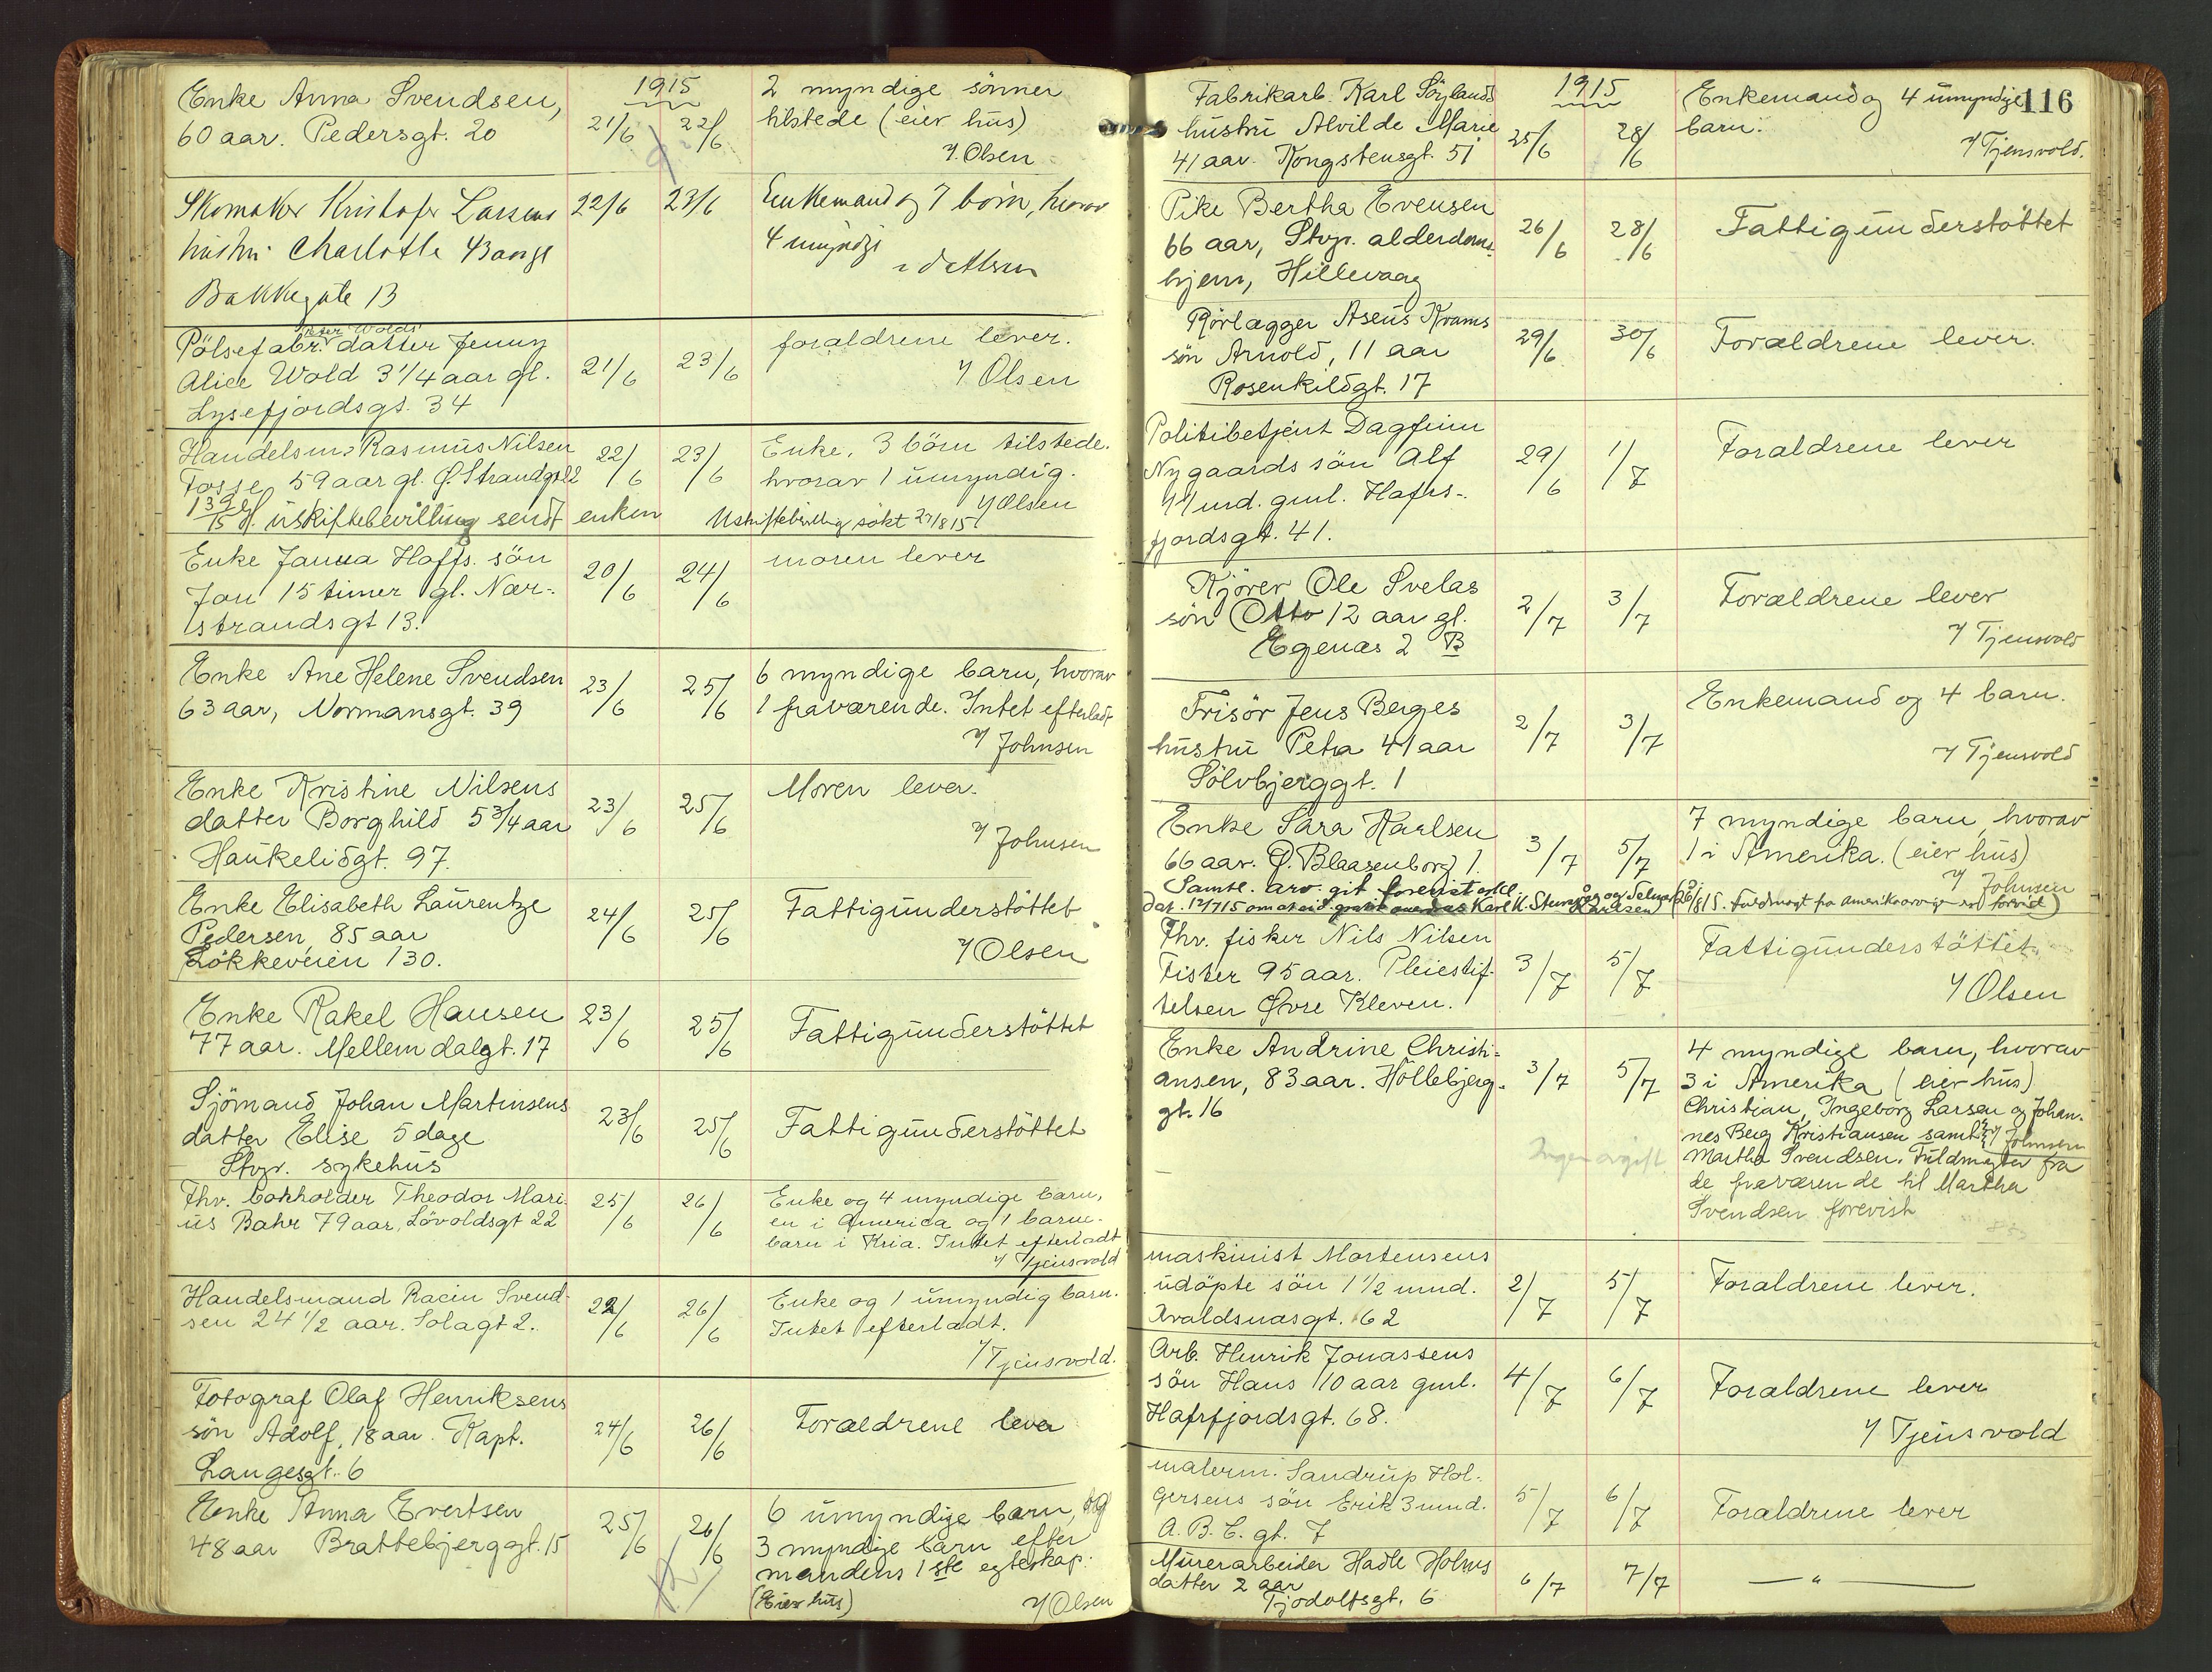 1915
Enke Anna Svendsen,
60 aar. Pedersgt. 20
21/6 22/6
2 myndige sönner
tilstede (eier hus)
Y. Olsen
Skomaker Kristofer Larsens
hustru Charlotte 43 aar gl
Bakkegate 13
22/6 23/6
Enkemand og 7 börn, hvorav
4 umyndige
Pölsefabr. Peter Wolds datter Jenny
Alice Wold 3 1/4 aar gl.
Lysefjordsgt. 34
21/6 23/6
foraldrene lever.
Y Olsen
Handelsm. Rasmus Nilsen
Fosse, 59 aar gl. Ø. Strandgt 12
uskiftebevilling sendt enken
22/6 23/6
Enke, 3 börn tilstede.
hvorav 1 umyndig.
Y Olsen
Uskiftebevillig sökt 27/8 15
Enke Janna Hoffs. sön
Jon 15 timer gl. Nær-
strandsgt 13.
20/6 24/6
moren lever
Enke Ane Helene Svendsen
63 aar, Normansgt. 39
23/6 25/6
6 myndige barn, hvorav
1 fraværende. Intet efterladt
Y Johnsen
Enke Kristine Nilsens
datter Borghild 5 3/4 aar
Haukelidgt. 97.
23/6 25/6
Moren lever.
Y Johnsen
Enke Elisabeth Laurentze
Pedersen, 85 aar
Lökkeveien 130.
24/6 25/6
Fattigunderstöttet
Y Olsen
Enke Rakel Hansen
77 aar. Mellemdalgt. 17
23/6 25/6
Fattigunderstöttet
Sjömand Johan Martinsens
datter Elise 5 dage
Stvgr. sykehus
23/6 25/6
Fattigunderstöttet
Fhv. bokholder Theodor Mari-
us Bahr 79 aar, Lövoldsgt 22
25/6 26/6
Enke og 4 myndige barn,
en i America og 1 barne-
barn i Kria. Intet efterladt
Y Tjensvold
Handelsmand Racin Svend-
sen 24 1/2 aar. Solagt 2.
22/6 26/6
Enke og 1 umyndig barn.
Intet efterladt.
Y Tjensvold.
Fotograf Olaf Henriksens
sön Adolf, 18 aar. Kapt.
Langesgt. 6
24/6 26/6
Forældrene lever
Enke Anna Evertsen
48 aar Brattebjerggt. 15
25/6 26/6
6 umyndige barn, og
3 myndige barn efter
mandens 1ste egteskap.
(Eier hus)
Y Olsen
116
1915
Fabrikarb. Karl Söylands
hustru Alvilde Marie
41 aar. Kongstensgt. 51
25/6 28/6
Enkemand og 4 umyndige
barn.
Y Tjensvold.
Pike Bertha Evensen
66 aar, Stvgr. alderdoms-
hjem, Hillevaag
26/6 28/6
Fattigunderstöttet
Rörlægger Aseus Krams
sön Arnold, 11 aar
Rosenkildgt. 17
29/6 30/6
Forældrene lever.
Politibetjent Dagfinn
Nygaards sön Alf
11 mnd. gml. Hafrs-
fjordsgt. 41.
29/6 1/7
Foraldrene lever
Kjörer Ole Svelas
sön Otto 12 aar gl.
Egenæs 2 B
2/7 3/7
Forældrene lever
Y Tjensvold
Frisör Jens Berges
hustru Petra 41 aar
Sölvbjerggt. 1
2/7 3/7
Enkemand og 4 barn.
Y Tjensvold
Enke Sara Karlsen
66 aar. Ø. Blaasenborg 1.
3/7 5/7
7 myndige barn, hvorav
1 i Amerika. (eier hus)
Y Johnsen
Fhv. fisker Nils Nilsen
Fister 95 aar. Pleiestif-
telsen Øvre Kleven.
3/7 5/7
Fattigunderstöttet
Y Olsen
Enke Andrine Christi-
ansen, 83 aar. Höllebjerg-
gt. 16
3/7 5/7
4 myndige barn, hvorav
3 i Amerika (eier hus)
Christian, Ingeborg Larsen og Johan-
nes Berg Kristiansen samt
Y Johnsen
Martha Svendsen. Fuldmagter fra
de fraværende til Martha
Svendsen forevist
Ingen avgift
maskinist Mortensens
udöpte sön 1 1/2 mnd.
Avaldsnæsgt. 62
2/7 5/7
Foraldrene lever.
Arb. Henrik Jonassens
sön Hans 10 aar gml.
Hafrfjordsgt. 68.
4/7 6/7
Foraldrene lever
Y Tjensvold
malerm. Sandrup Hol-
gersens sön Erik 3 mnd.
A. B. C. gt. 7
5/7 6/7
Foraldrene lever
Murerarbeider Hadle Holms
datter 2 aar
Tjodolfsgt. 6
6/7 7/7
— " —